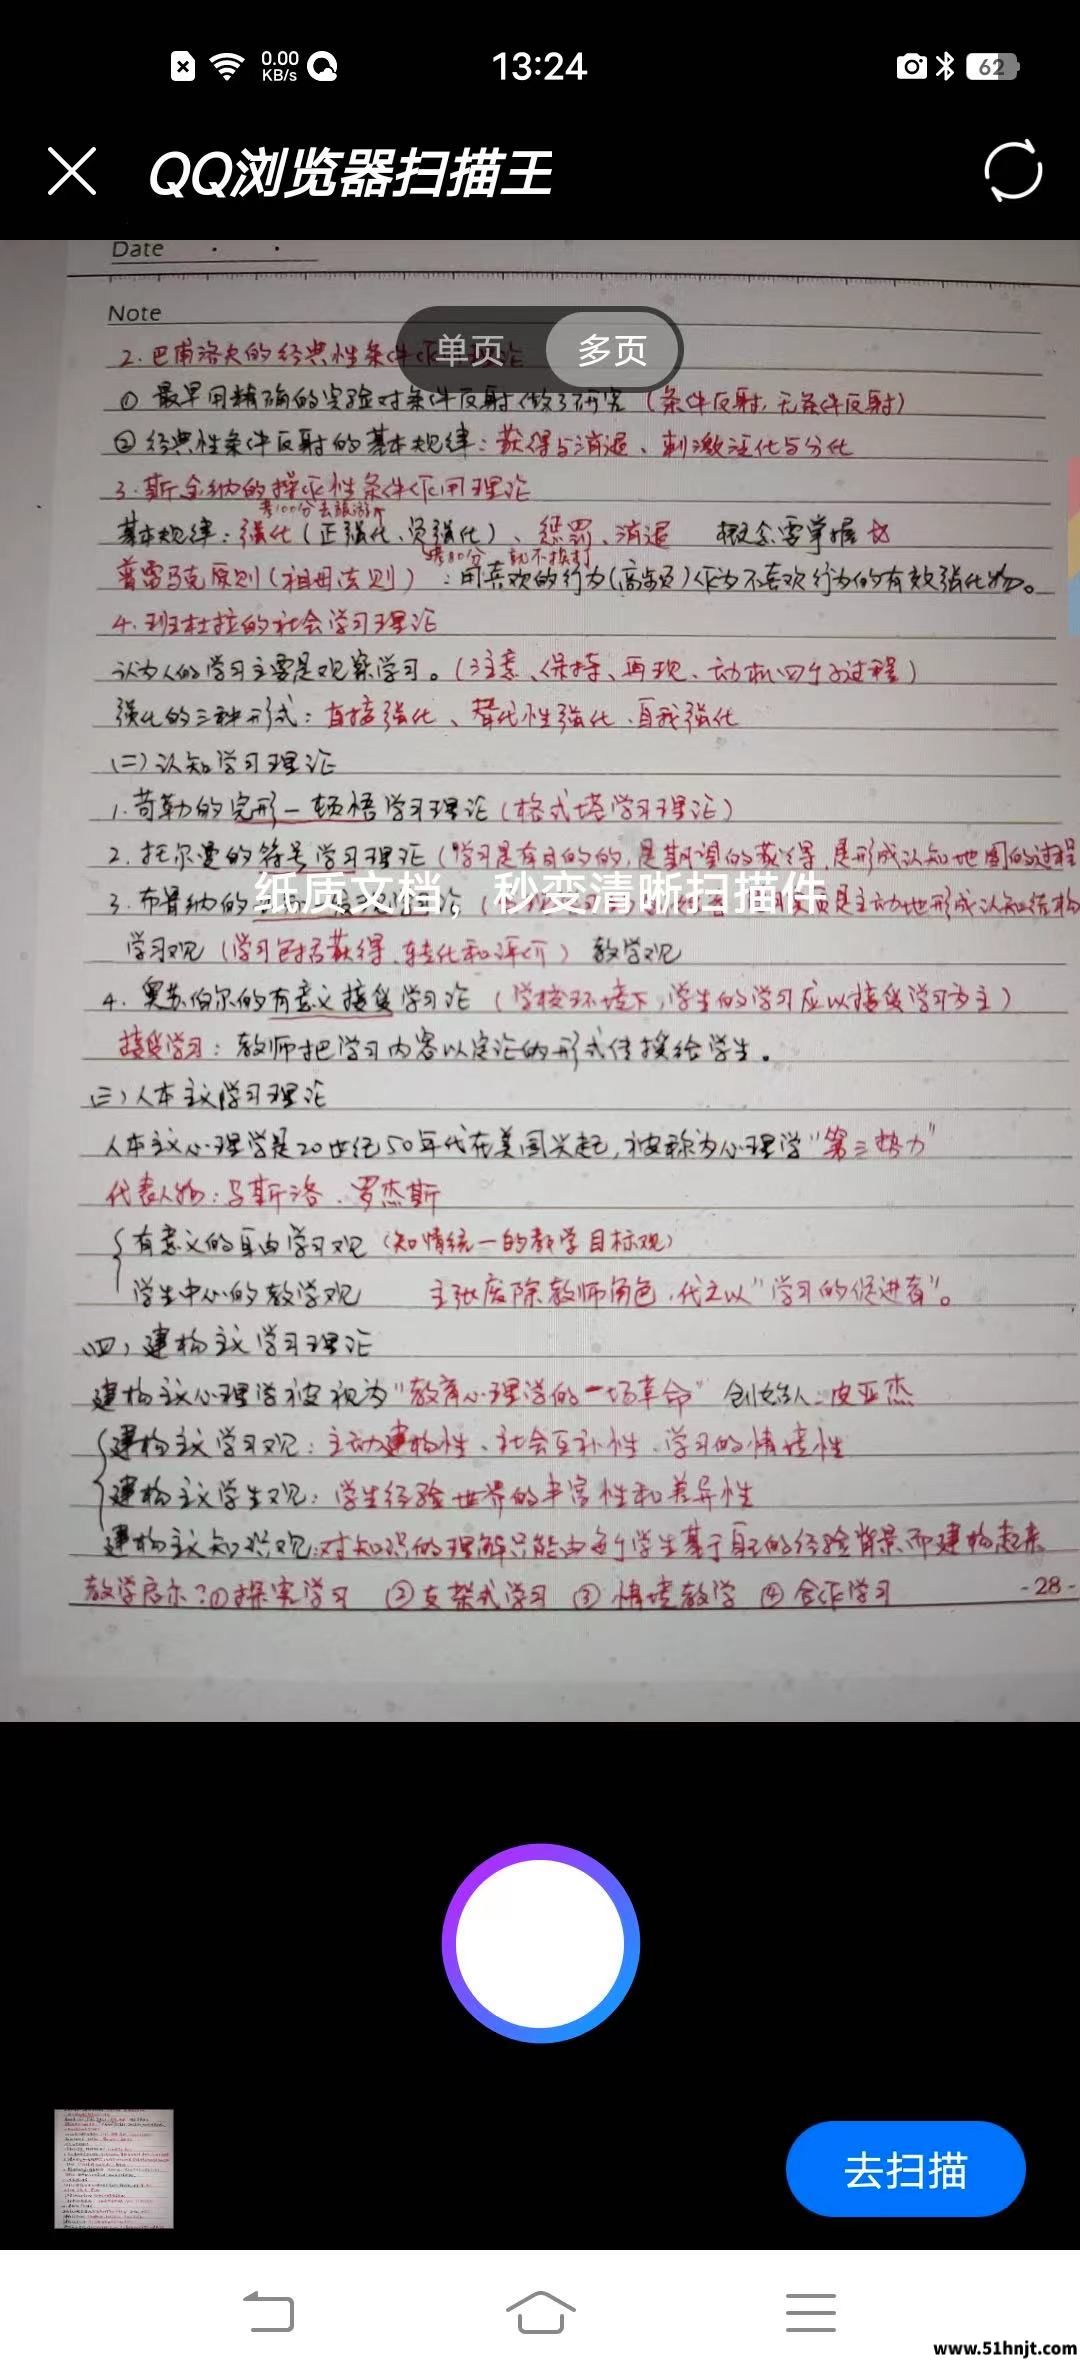 0.00
KB/s
13:24
62
QQ浏览器扫描王
Date
Note
单页
多页
2.巴甫洛夫的经典性条件作 论
① 最早用精确的实验对条件反射做了研究 (条件反射,无条件反射)
②经典性条件反射的基本规律:获得与消退、刺激泛化与分化
3.斯金纳的操作性条件作用理论
考100分去旅游
基本规律:强化(正强化、负强化)、惩罚、消退 概念要掌握
考80分 就不挨打
普雷马克原则(祖母法则):用喜欢的行为(高频)作为不喜欢行为的有效强化物。
4.班杜拉的社会学习理论
认为人的学习主要是观察学习。(注意、保持、再现、动机四个子过程)
强化的三种形式:直接强化、替代性强化、自我强化
(二)认知学习理论
1.苛勒的完形一顿悟学习理论(格式塔学习理论)
2.托尔曼的符号学习理论(学习是有目的的,是期望的获得,是形成认知地图的过程
纸质文档,秒变清晰扫描件
3.布鲁纳的 论( 是主动地形成认知结构
学习观(学习包括获得、转化和评价) 教学观
4.奥苏伯尔的有意义接受学习论(学校环境下,学生的学习应以接受学习为主)
接受学习:教师把学习内容以定论的形式传授给学生。
(三)人本主义学习理论
人本主义心理学是20世纪50年代在美国兴起,被称为心理学“第三势力”
代表人物:马斯洛、罗杰斯
有意义的自由学习观(知情统一的教学目标观)
学生中心的教学观 主张废除教师角色,代之以“学习的促进者”。
(四)建构主义学习理论
建构主义心理学被视为“教育心理学的一场革命” 创始人:皮亚杰
建构主义学习观:主动建构性、社会互补性、学习的情境性
建构主义学生观:学生经验世界的丰富性和差异性
建构主义知识观:对知识的理解只能由每个学生基于自己的经验背景而建构起来
教学启示:①探究学习 ②支架式学习 ③情境教学 ④合作学习
-28-
去扫描
www.51hnjt.com